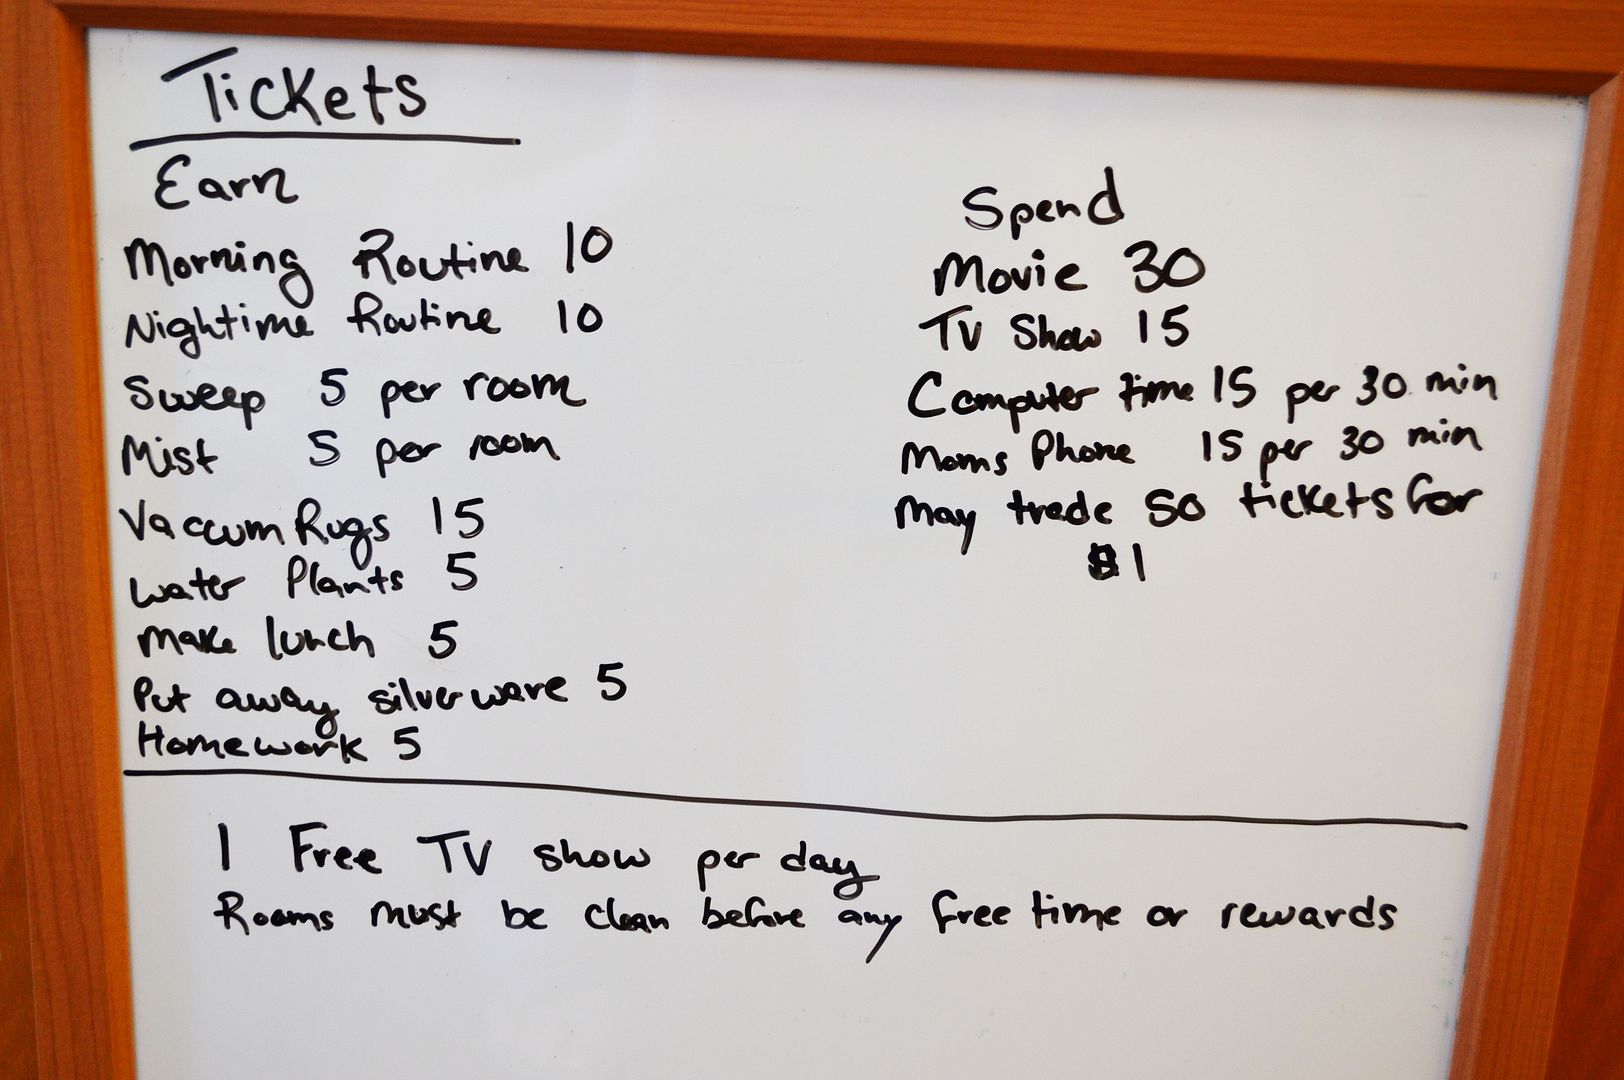 Tickets
Earn
Morning Routine 10
Nightime Routine 10
Sweep 5 per room
Mist 5 per room
Vaccum Rugs 15
water Plants 5
make lunch 5
Put away silverware 5
Homework 5
Spend
Movie 30
TV Show 15
Computer time 15 per 30 min
Moms Phone 15 per 30 min
May trade 50 tickets for
$1
1 Free TV show per day
Rooms must be clean before any free time or rewards